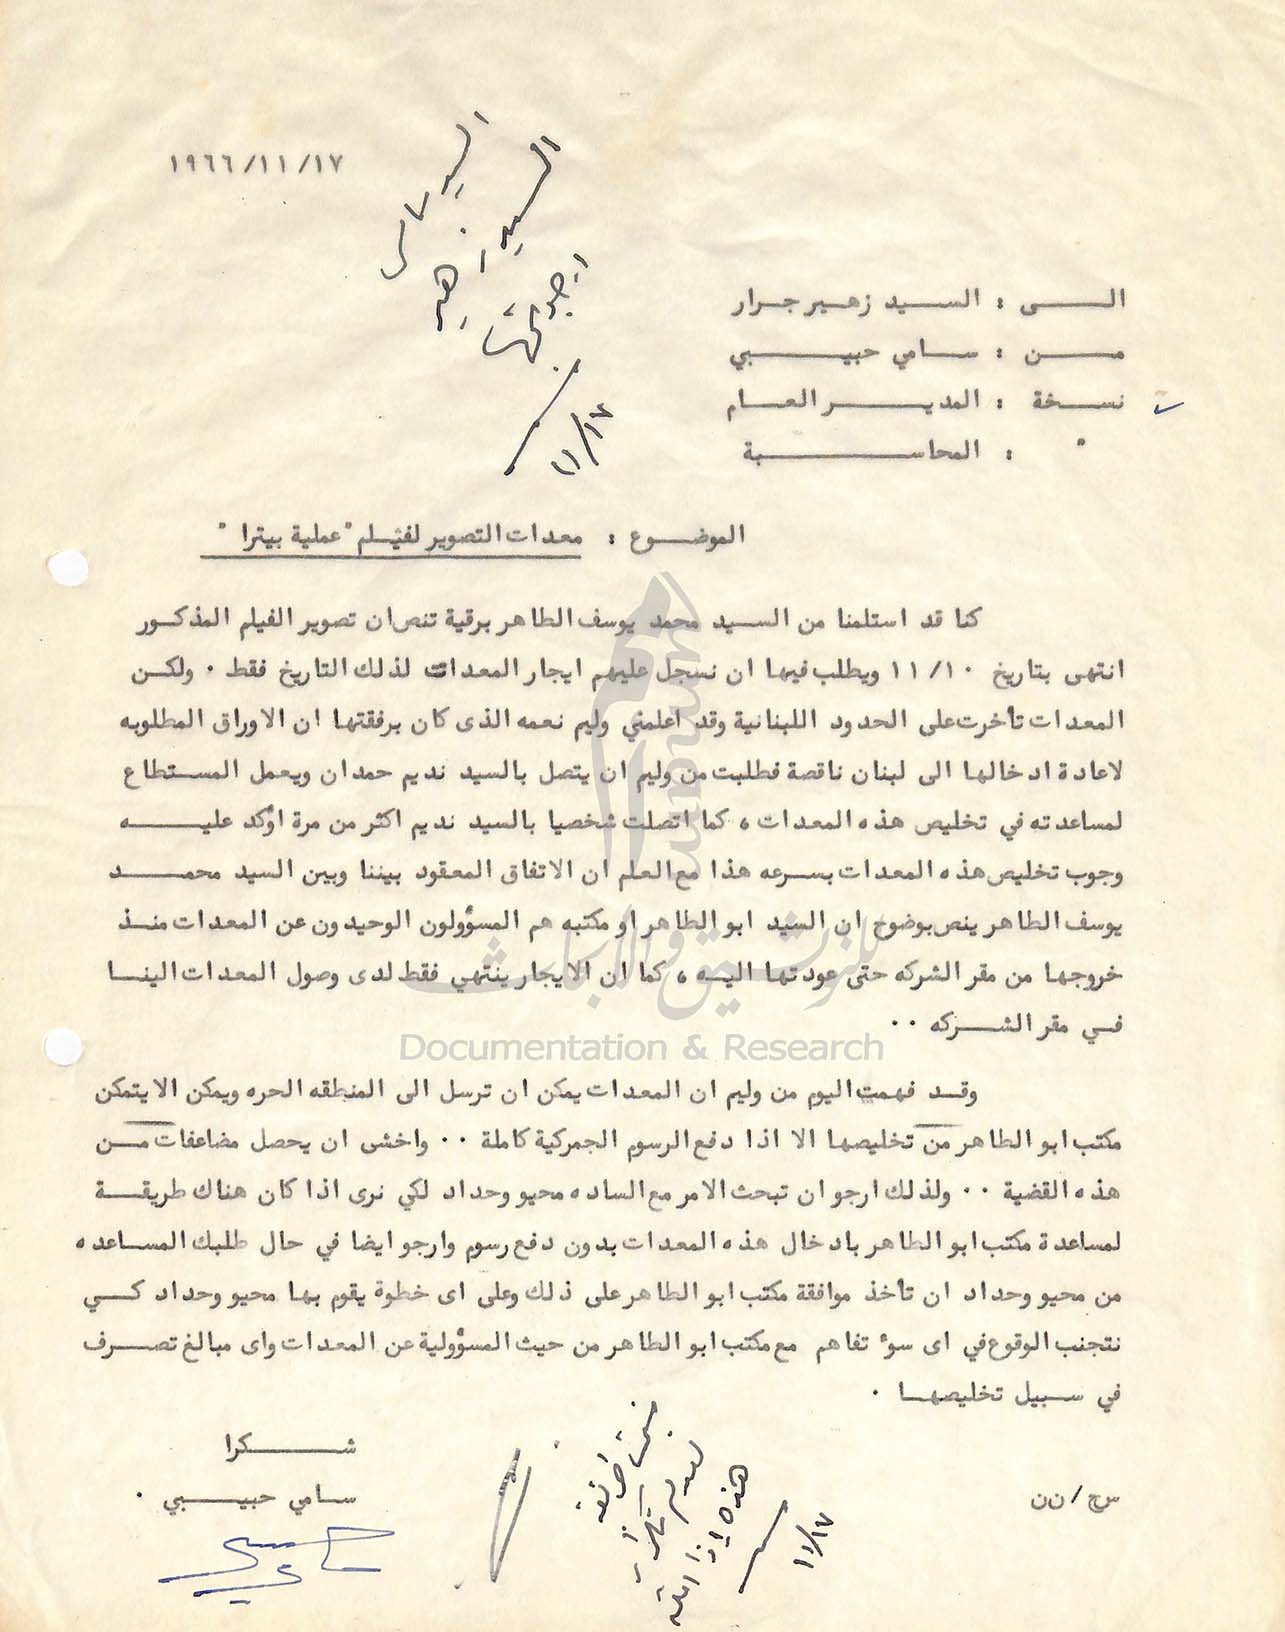 ١٩٦٦/١١/١٧
السيد سامي
السيد زهير
١١/١٧
الـــى : السيد زهير جرار
مـــن : سامي حبيـــبي
نسـخة : المديـــر العـــام
" : المحاســـبة
الموضـوع : معدات التصوير لفيـلم "عملية بيترا"
كنا قد استلمنا من السيد محمد يوسف الطاهر برقية تنص ان تصوير الفيلم المذكور
انتهى بتاريخ ١١/١٠ ويطلب فيها ان نسجل عليهم ايجار المعدات لذلك التاريخ فقط ٠ ولكن
المعدات تأخرت على الحدود اللبنانية وقد اعلمني وليم نعمه الذى كان برفقتها ان الاوراق المطلوبه
لاعادة ادخالها الى لبنان ناقصة فطلبت من وليم ان يتصل بالسيد نديم حمدان ويعمل المستطاع
لمساعدته في تخليص هذه المعدات ، كما اتصلت شخصيا بالسيد نديم اكثر من مرة اؤكد عليـــه
وجوب تخليص هذه المعدات بسرعه هذا مع العلم ان الاتفاق المعقود بيننا وبين السيد محمـــد
يوسف الطاهر ينص بوضوح ان السيد ابو الطاهر او مكتبه هم المسؤولون الوحيدون عن المعدات منـذ
خروجها من مقر الشركه حتى عودتها اليـه ، كما ان الايجار ينتهي فقط لدى وصول المعدات الينـا
فـي مقر الشـركه ٠٠
وقـد فهمت اليوم من وليم ان المعدات يمكن ان ترسل الى المنطقه الحره ويمكن الا يتمكن
مكتب ابو الطاهر من تخليصها الا اذا دفع الرسوم الجمركية كاملة ٠٠ واخشى ان يحصل مضاعفات مـن
هذه القضية ٠٠ ولذلك ارجو ان تبحث الامر مع الساده محيو وحداد لكي نرى اذا كان هناك طريقـة
لمساعدة مكتب ابو الطاهر بادخال هذه المعدات بدون دفع رسوم وارجو ايضا في حال طلبك المساعده
من محيو وحداد ان تأخذ موافقة مكتب ابو الطاهر على ذلك وعلى اى خطوة يقوم بها محيو وحداد كـي
نتجنب الوقوع في اى سوء تفاهم مع مكتب ابو الطاهر من حيث المسؤولية عن المعدات واى مبالغ تصرف
في سـبيل تخليصهـا ٠
شـــكرا
سـامي حبيـــبي ٠
س ح / ن ن
١١/١٧
للتوثيق والأبحاث
Documentation & Research